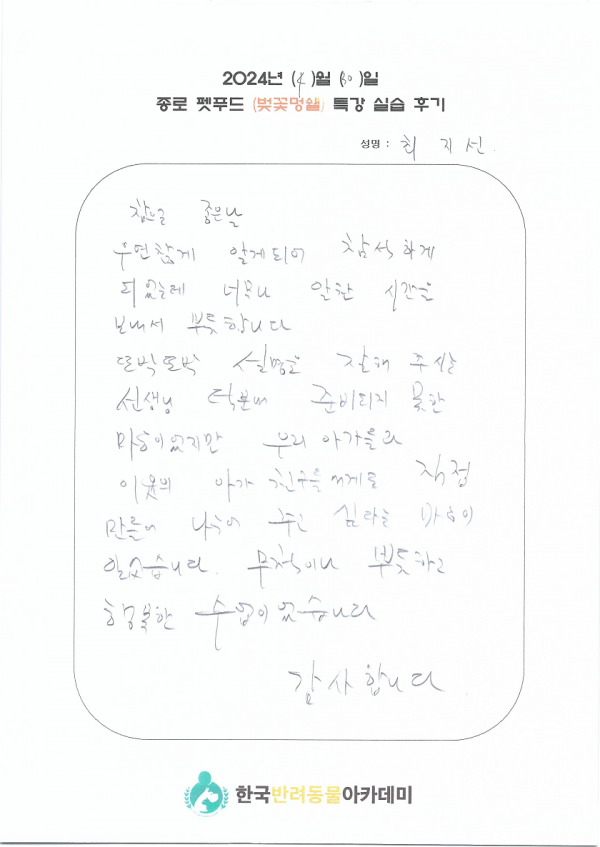 2024년 (4)월 (30)일
종로 펫푸드 (벚꽃멍쉘) 특강 실습 후기
성명 : 최 지 선
참으로 좋은날
우연찮게 알게되어 참석하게
되었는데 너무나 알찬 시간을
보내서 뿌듯합니다
또박또박 설명을 잘해 주시는
선생님 덕분에 준비되지 못한
마음이었지만 우리 아가들과
이웃의 아가 친구들에게도 직접
만들어 나누어 주고 싶다는 마음이
일었습니다. 무척이나 뿌듯하고
행복한 수업이었습니다
감사합니다
한국반려동물아카데미